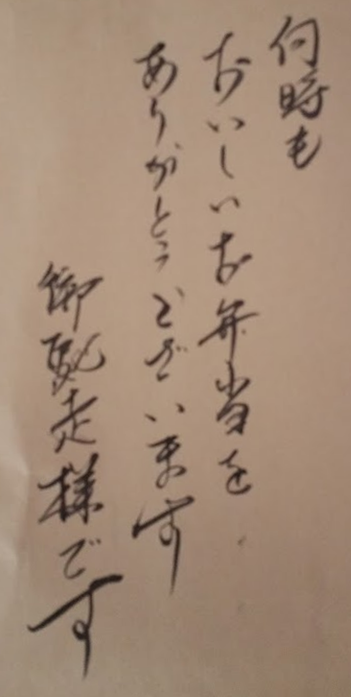 何時も
おいしいお弁当を
ありがとうございます
御馳走様です